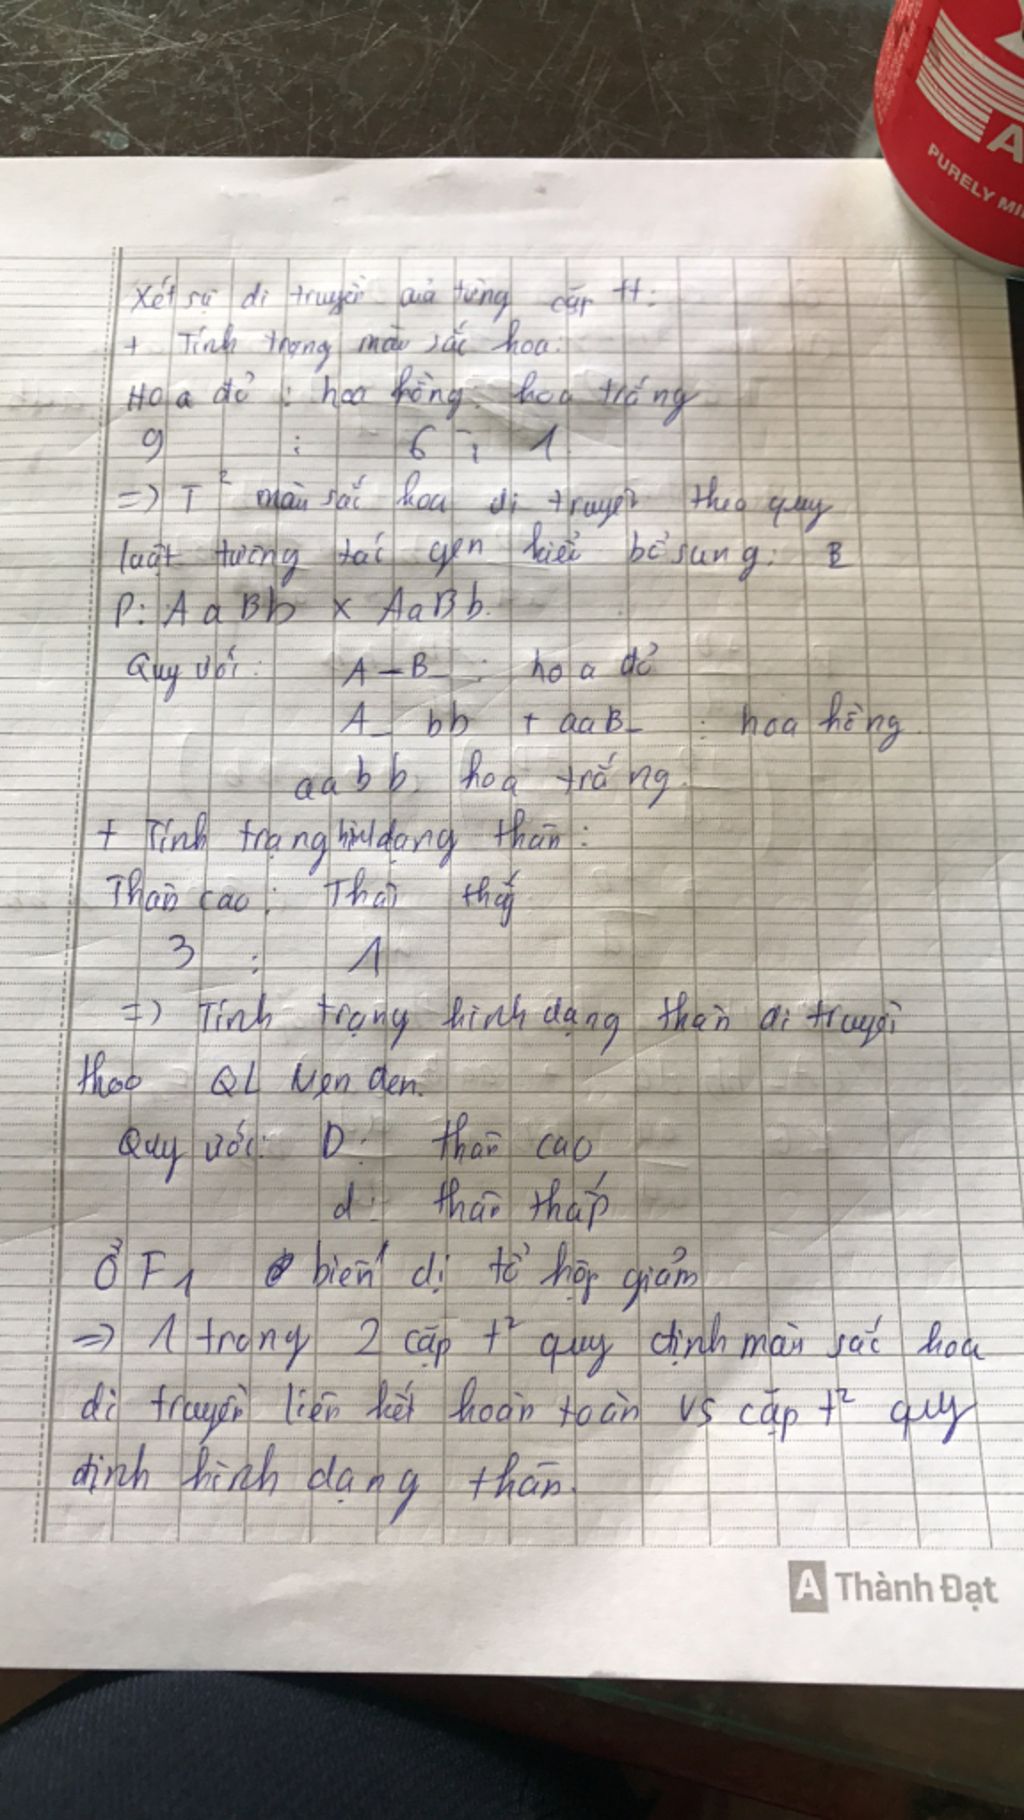 A
PURELY MI
Xét sự di truyền của từng cặp tt:
+ Tính trạng màu sắc hoa:
Hoa đỏ : hoa hồng : hoa trắng
9 : 6 : 1
=> T² màu sắc hoa di truyền theo quy
luật tương tác gen kiểu bổ sung:
P: AaBb x AaBb.
Quy ước: A-B- : hoa đỏ
A- bb + aaB- : hoa hồng.
aabb: hoa trắng.
+ Tính trạng hình dạng thân:
Thân cao : Thân thấp
3 : 1
=> Tính trạng hình dạng thân di truyền
theo QL Men đen.
Quy ước: D: thân cao
d: thân thấp
Ở F1 biến dị tổ hợp giảm
=> 1 trong 2 cặp t² quy định màu sắc hoa
di truyền liên kết hoàn toàn vs cặp t² quy
định hình dạng thân.
A Thành Đạt